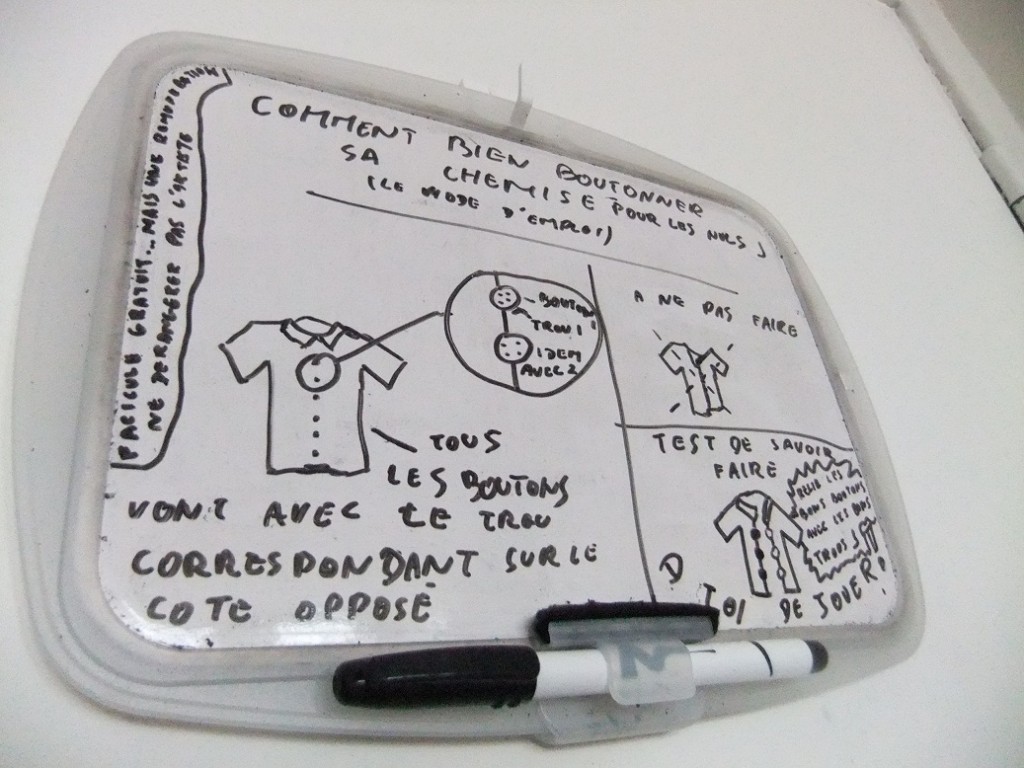 COMMENT BIEN BOUTONNER
SA CHEMISE (POUR LES NULS)
(LE MODE D'EMPLOI)
GRATUIT... MAIS UNE
NE PAS
BOUTON 1
TROU 1
IDEM
AVEC 2
TOUS
LES BOUTONS
VONT AVEC LE TROU
CORRESPONDANT SUR LE
COTE OPPOSÉ
A NE PAS FAIRE
TEST DE SAVOIR
FAIRE
RELIE LES
BONS BOUTONS
AVEC LES BONS
TROUS
A TOI DE JOUER!